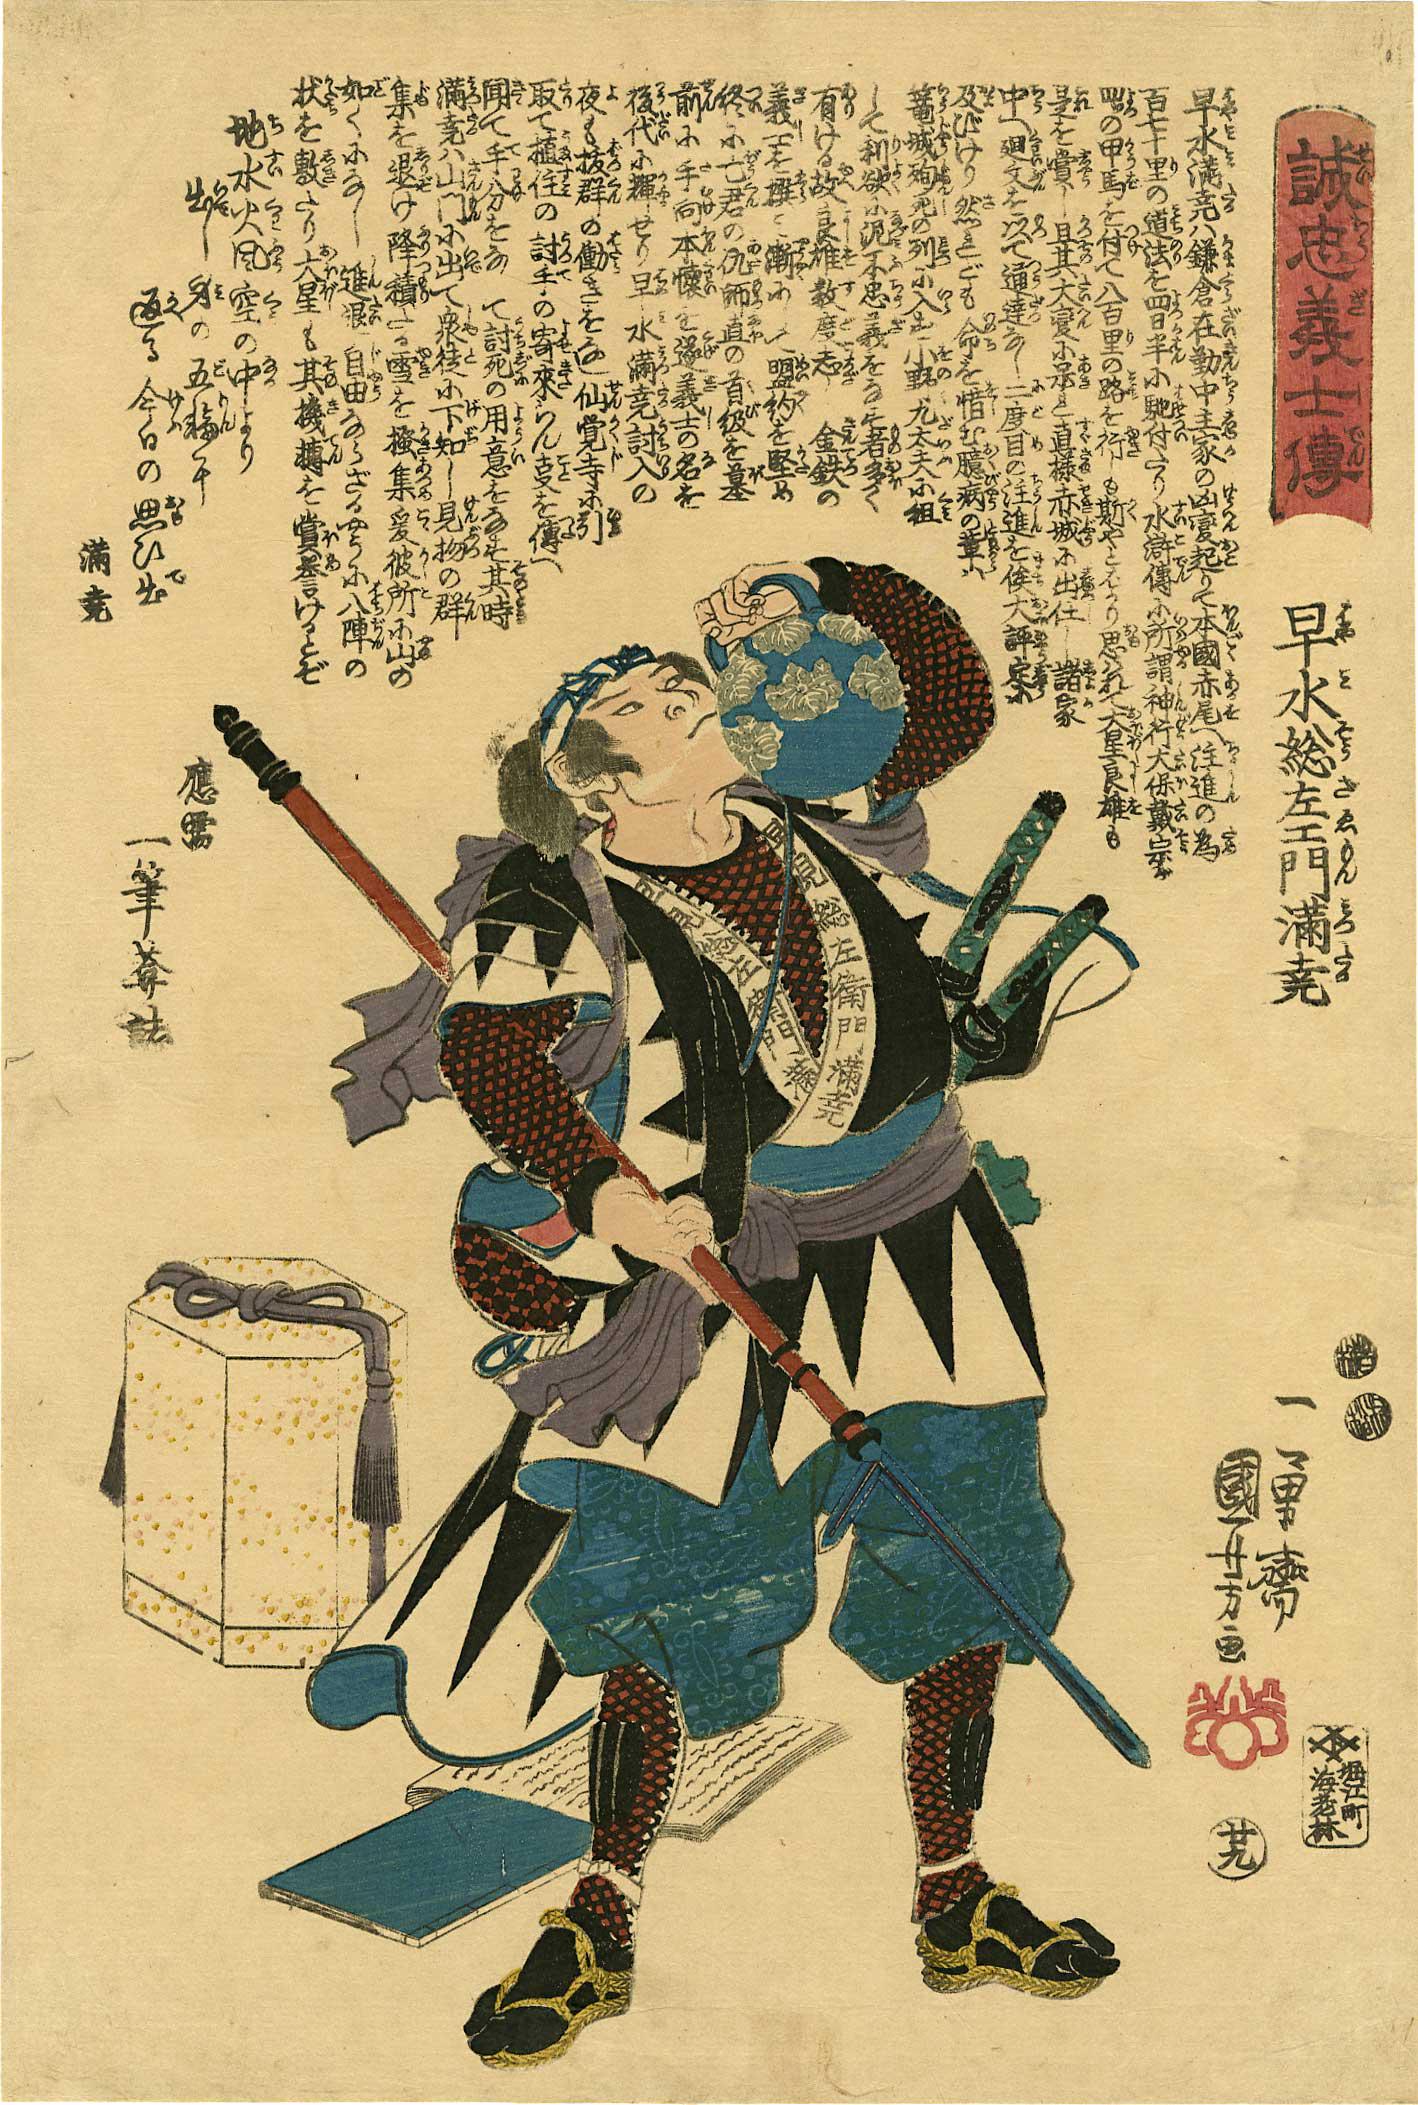 誠忠義士傳
早水総左エ門満尭
早水満尭ハ鎌倉在勤中主家の凶変起りて本國赤尾へ注進の為
百七十里の道法を四日半に馳付たり水滸傳に所謂神行太保戴宗が
四の甲馬を付て八百里の路を行も斯やとばかり思れて大星良雄も
是を賞し且其大変に
中へ廻文を以て通達なし二度目の注進を俟大評定に
及びけり然れども命を惜む臆病の輩ハ
篭城殉死の列に入ず小野九太夫に組
して利欲に泥不忠義をなす者多く
有ける故良雄数度志し金鉄の
義士を撰て漸に盟約を堅め
終に亡君の仇師直の首級を墓
前に手向本懐を遂義士の名を
後代に輝せり早水満尭討入の
夜も抜群の働きをなし仙覚寺に引
取て植住の討手の寄来らん支を傳へ
聞て手分をなして討死の用意をなす其時
満尭ハ山門に出て衆徒に下知し見物の群
集を退け降積る雪を掻集爰彼所に山の
如くになし進退自由ならざるやうに八陣の
状を敷たり大星も其機轉を賞誉けるとぞ
地水火風空の中より
出し身の五輪に
返る今日の思ひ出
満尭
應需
一筆葊誌
総左衛門満尭
一勇齋
國芳画
堀江町
海老林
廿九